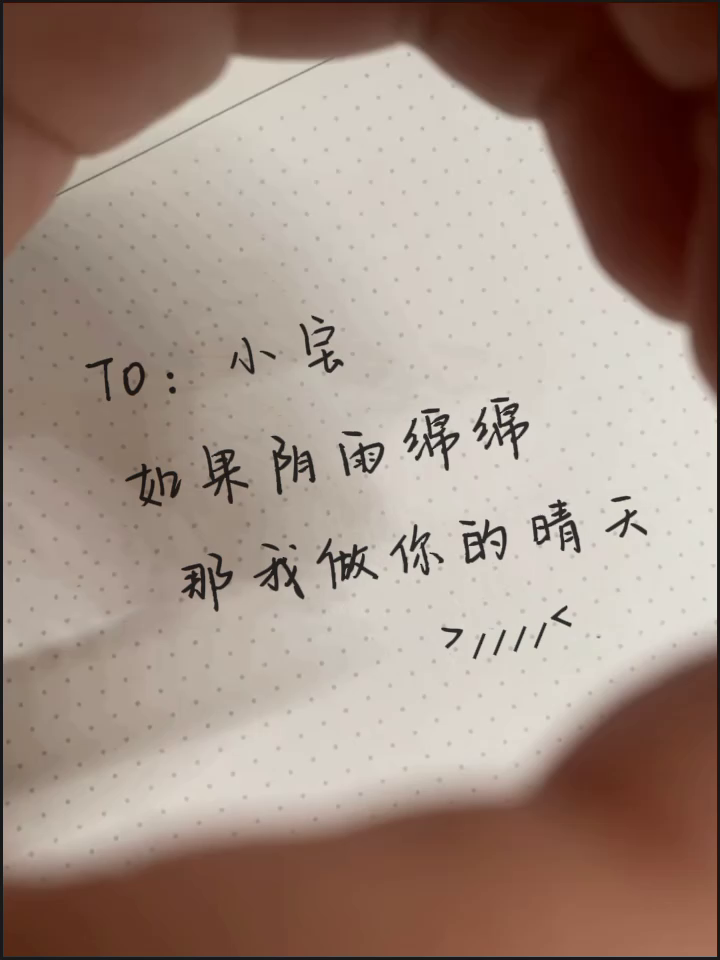 TO: 小宝
如果阴雨绵绵
那我做你的晴天
>////<